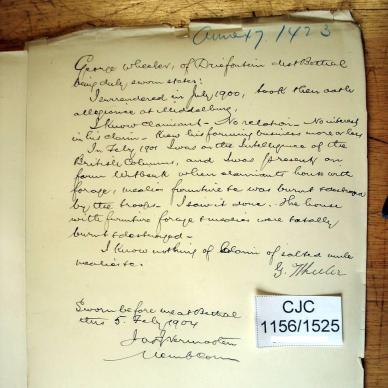 Annex 7. 1423
George Wheeler, of Driefontein dist Bethal
being duly sworn states:
I surrendered in July 1900, took then oath
allegiance at Middelburg.
I know claimant – No relation – No interest
in his claim – Knew his farming business more or less
In Feby 1901 I was on the Intelligence of the
British Columns, and I was present on
farm Witbank when claimants house with
forage, mealies furniture &c was burnt & destroyed
by the troops – I saw it done. The house
with furniture forage & mealies were totally
burnt & destroyed –
I know nothing of claim of salted mule
mealies &c.
G. Wheeler
Sworn before me at Bethal
this 5. Feby 1904
CJC
1156/1525